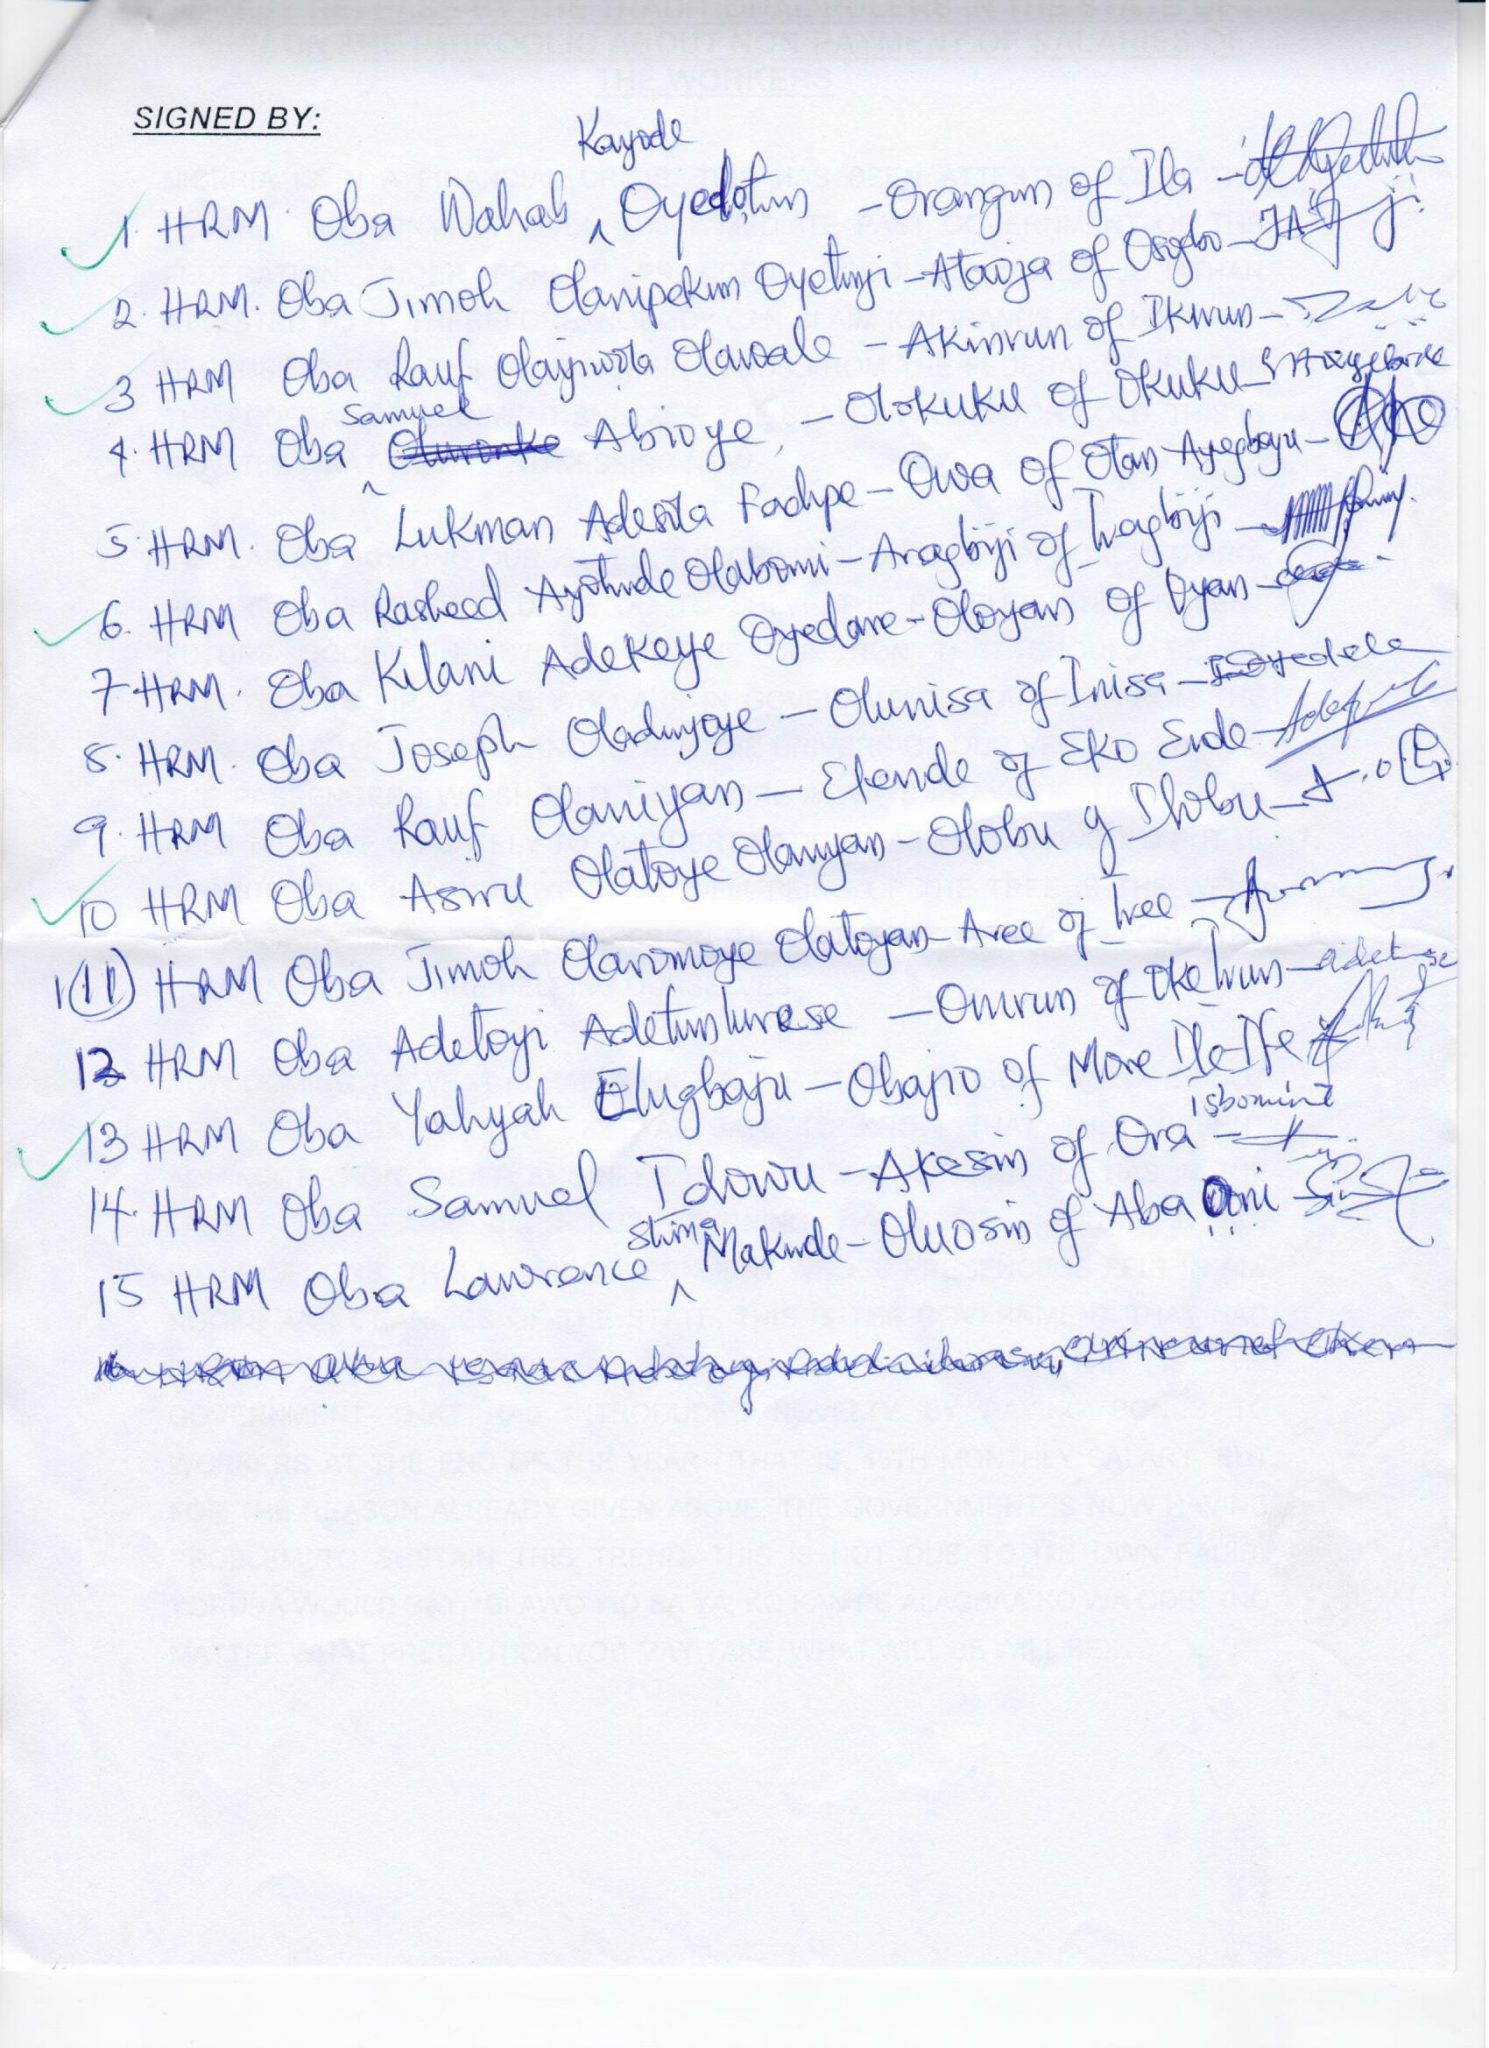 SIGNED BY:
Kayode
1. HRM. Oba Wahab ^ Oyedotun - Orangun of Ila -
2. HRM. Oba Jimoh Olanipekun Oyetunji - Ataoja of Osogbo -
3 HRM Oba Rauf Olayiwola Olawale - Akinrun of Ikirun -
Samuel
4. HRM Oba ^ Abioye, - Olokuku of Okuku -
5. HRM. Oba Lukman Adesola Fadipe - Owa of Otan Ayegbaju -
6. HRM Oba Rasheed Ayotunde Olabomi - Aragbiji of Iragbiji -
7. HRM. Oba Kilani Adekeye Oyedare - Oloyan of Oyan -
8. HRM. Oba Joseph Oladunjoye - Olunisa of Inisa -
9. HRM Oba Rauf Olaniyan - Ekende of Eko Ende -
10 HRM Oba Asiru Olatoye Olaniyan - Olobu of Ilobu -
1(11) HRM Oba Jimoh Olaromoye Olatoyan - Aree of Iree -
12 HRM Oba Adetoyi - of
13 HRM Oba Yahyah Elugbaju - Obajio of More Ile-Ife
Igbomina
14. HRM Oba Samuel Idowu - Akesin of Ora -
15 HRM Oba Lawrence ^ Makinde - Oluosin of Aba Ooni -